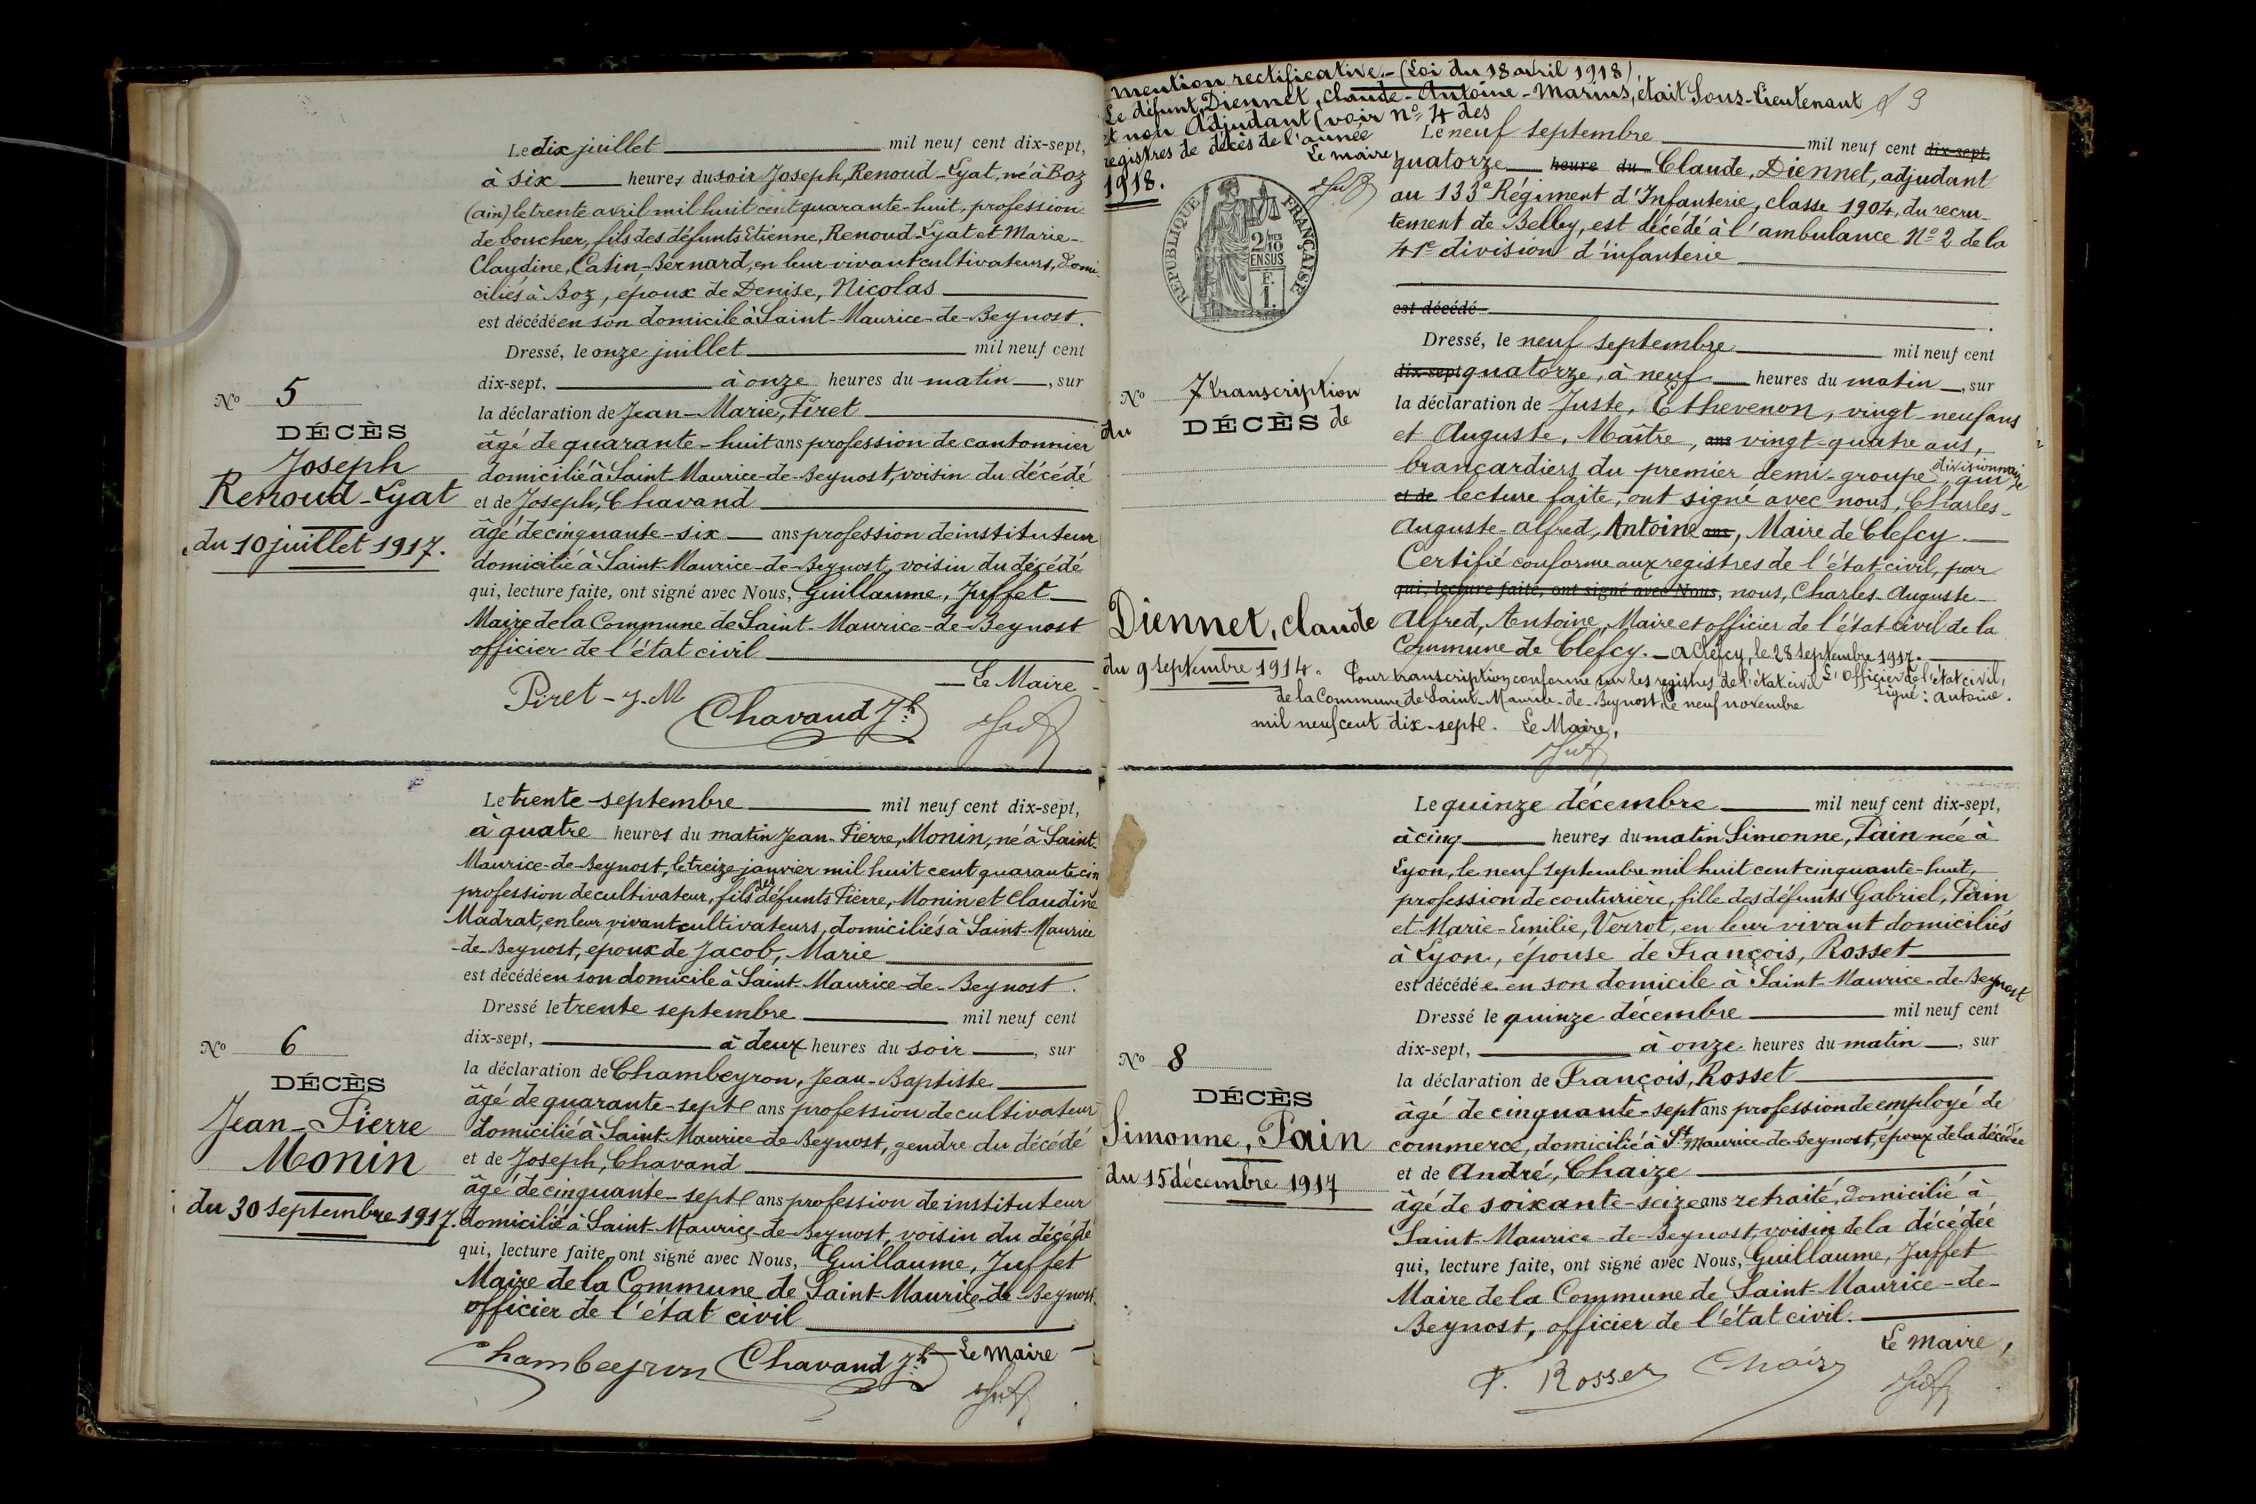 Le dix juillet mil neuf cent dix-sept,
à six heures du soir Joseph, Renoud-Lyat, né à Boz
(Ain) le trente avril mil huit cent quarante-huit, profession
de boucher, fils des défunts Etienne, Renoud-Lyat et Marie-
Claudine, Catin-Bernard, en leur vivant cultivateurs, domi-
ciliés à Boz, époux de Denise, Nicolas
est décédé en son domicile à Saint-Maurice-de-Beynost.
Dressé, le onze juillet mil neuf cent
dix-sept, à onze heures du matin, sur
la déclaration de Jean-Marie, Piret
âgé de quarante-huit ans profession de cantonnier
domicilié à Saint-Maurice-de-Beynost, voisin du décédé
et de Joseph, Chavand
âgé de cinquante-six ans profession de instituteur
domicilié à Saint-Maurice-de-Beynost, voisin du décédé
qui, lecture faite, ont signé avec Nous, Guillaume, Juffet
Maire de la Commune de Saint-Maurice-de-Beynost
officier de l'état civil
Le Maire
Piret-J.M
Chavand Jh
No 5
DÉCÈS
Joseph
Renoud-Lyat
du 10 juillet 1917.
Le trente septembre mil neuf cent dix-sept,
à quatre heures du matin Jean-Pierre, Monin, né à Saint-
Maurice-de-Beynost, le treize janvier mil huit cent quarante cin
profession de cultivateur, fils des défunts Pierre, Monin et Claudine
Madrat, en leur vivant cultivateurs, domiciliés à Saint-Maurice
-de-Beynost, époux de Jacob, Marie
est décédé en son domicile à Saint-Maurice-de-Beynost.
Dressé le trente septembre mil neuf cent
dix-sept, à deux heures du soir, sur
la déclaration de Chambeyron, Jean-Baptiste
âgé de quarante-sept ans profession de cultivateur
domicilié à Saint-Maurice-de-Beynost, gendre du décédé
et de Joseph, Chavand
âgé de cinquante-sept ans profession de instituteur
domicilié à Saint-Maurice-de-Beynost, voisin du décédé
qui, lecture faite, ont signé avec Nous, Guillaume, Juffet
Maire de la Commune de Saint-Maurice-de-Beynost
officier de l'état civil
Le Maire
Chambeyron Chavand Jh
No 6
DÉCÈS
Jean-Pierre
Monin
du 30 septembre 1917.
Mention rectificative.- (Loi du 18 avril 1918),
Le défunt, Diennet, Claude-Antoine-Marius, était Sous-Lieutenant
et non Adjudant (voir no 4 des
registres de décès de l'année
1918.
Le maire
9
RÉPUBLIQUE FRANÇAISE
2/10 EN SUS
F.
1.
Le neuf septembre mil neuf cent dix-sept,
quatorze heure du Claude, Diennet, adjudant
au 133e Régiment d'Infanterie, classe 1904, du recru-
tement de Belley, est décédé à l'ambulance No 2 de la
41e division d'infanterie
est décédé
Dressé, le neuf septembre mil neuf cent
dix-sept quatorze, à neuf heures du matin, sur
la déclaration de Juste, Ethevenon, vingt-neuf ans
et Auguste, Maître, ans vingt-quatre ans,
brancardiers du premier demi-groupe divisionnaire, qui
et de lecture faite, ont signé avec nous, Charles-
Auguste-Alfred, Antoine ans, Maire de Clefcy.
Certifié conforme aux registres de l'état civil, par
qui, lecture faite, ont signé avec Nous, nous, Charles-Auguste-
Alfred, Antoine, Maire et officier de l'état civil de la
Commune de Clefcy. - A Clefcy, le 28 septembre 1917.
L'Officier de l'état civil,
Signé : Antoine.
Pour transcription conforme sur les registres de l'état civil
de la Commune de Saint-Maurice-de-Beynost, le neuf novembre
mil neuf cent dix-sept. Le Maire,
No 7 transcription
du DÉCÈS de
Diennet, Claude
du 9 septembre 1914.
Le quinze décembre mil neuf cent dix-sept,
à cinq heures du matin Simonne, Pain née à
Lyon, le neuf septembre mil huit cent cinquante-huit,
profession de couturière, fille des défunts Gabriel, Pain
et Marie-Emilie, Verrot, en leur vivant domiciliés
à Lyon, épouse de François, Rosset
est décédée en son domicile à Saint-Maurice-de-Beynost
Dressé le quinze décembre mil neuf cent
dix-sept, à onze heures du matin, sur
la déclaration de François, Rosset
âgé de cinquante-sept ans profession de employé de
commerce, domicilié à St Maurice-de-Beynost, époux de la décédée
et de André, Chaize
âgé de soixante-seize ans retraité, domicilié à
Saint-Maurice-de-Beynost, voisin de la décédée
qui, lecture faite, ont signé avec Nous, Guillaume, Juffet
Maire de la Commune de Saint-Maurice-de-
Beynost, officier de l'état civil.
Le Maire,
F. Rosset Chaize
No 8
DÉCÈS
Simonne, Pain
du 15 décembre 1917